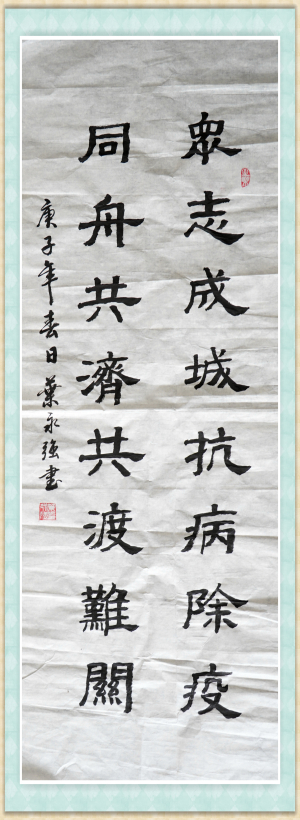 眾志成城抗病除疫
同舟共濟共渡難關
庚子年春日葉永强書